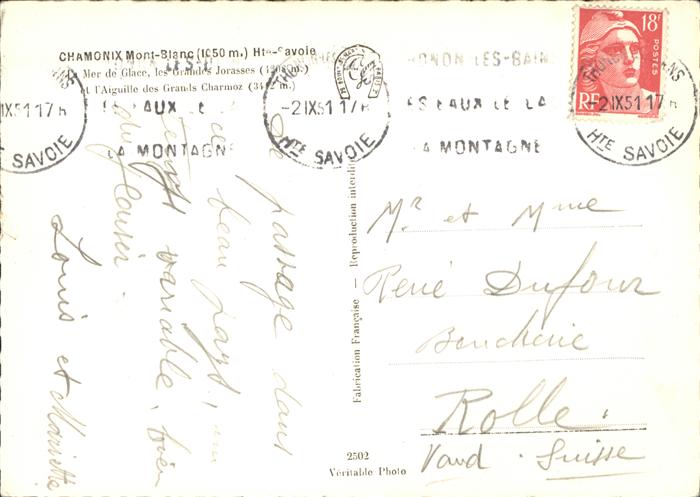 CHAMONIX Mont-Blanc (1050 m.) Hte-Savoie
La Mer de Glace, les Grandes Jorasses (4208 m.)
et l'Aiguille des Grands Charmoz (3442 m.)
2 IX 51 17 H
SAVOIE
LES EAUX LE LA
LA MONTAGNE
-2 IX 51 17 H
HTE SAVOIE
THONON-LES-BAINS
LES EAUX LE LA
LA MONTAGNE
2 IX 51 17 H
HTE SAVOIE
18F
POSTES
RF
De passage dans
ce beau pays, un
temps variable, bien
du plaisir.
Louis et Mariette
Fabrication Française — Reproduction interdite
2502
Véritable Photo
Mr et Mme
René Dufour
Boucherie
Rolle.
Vaud - Suisse